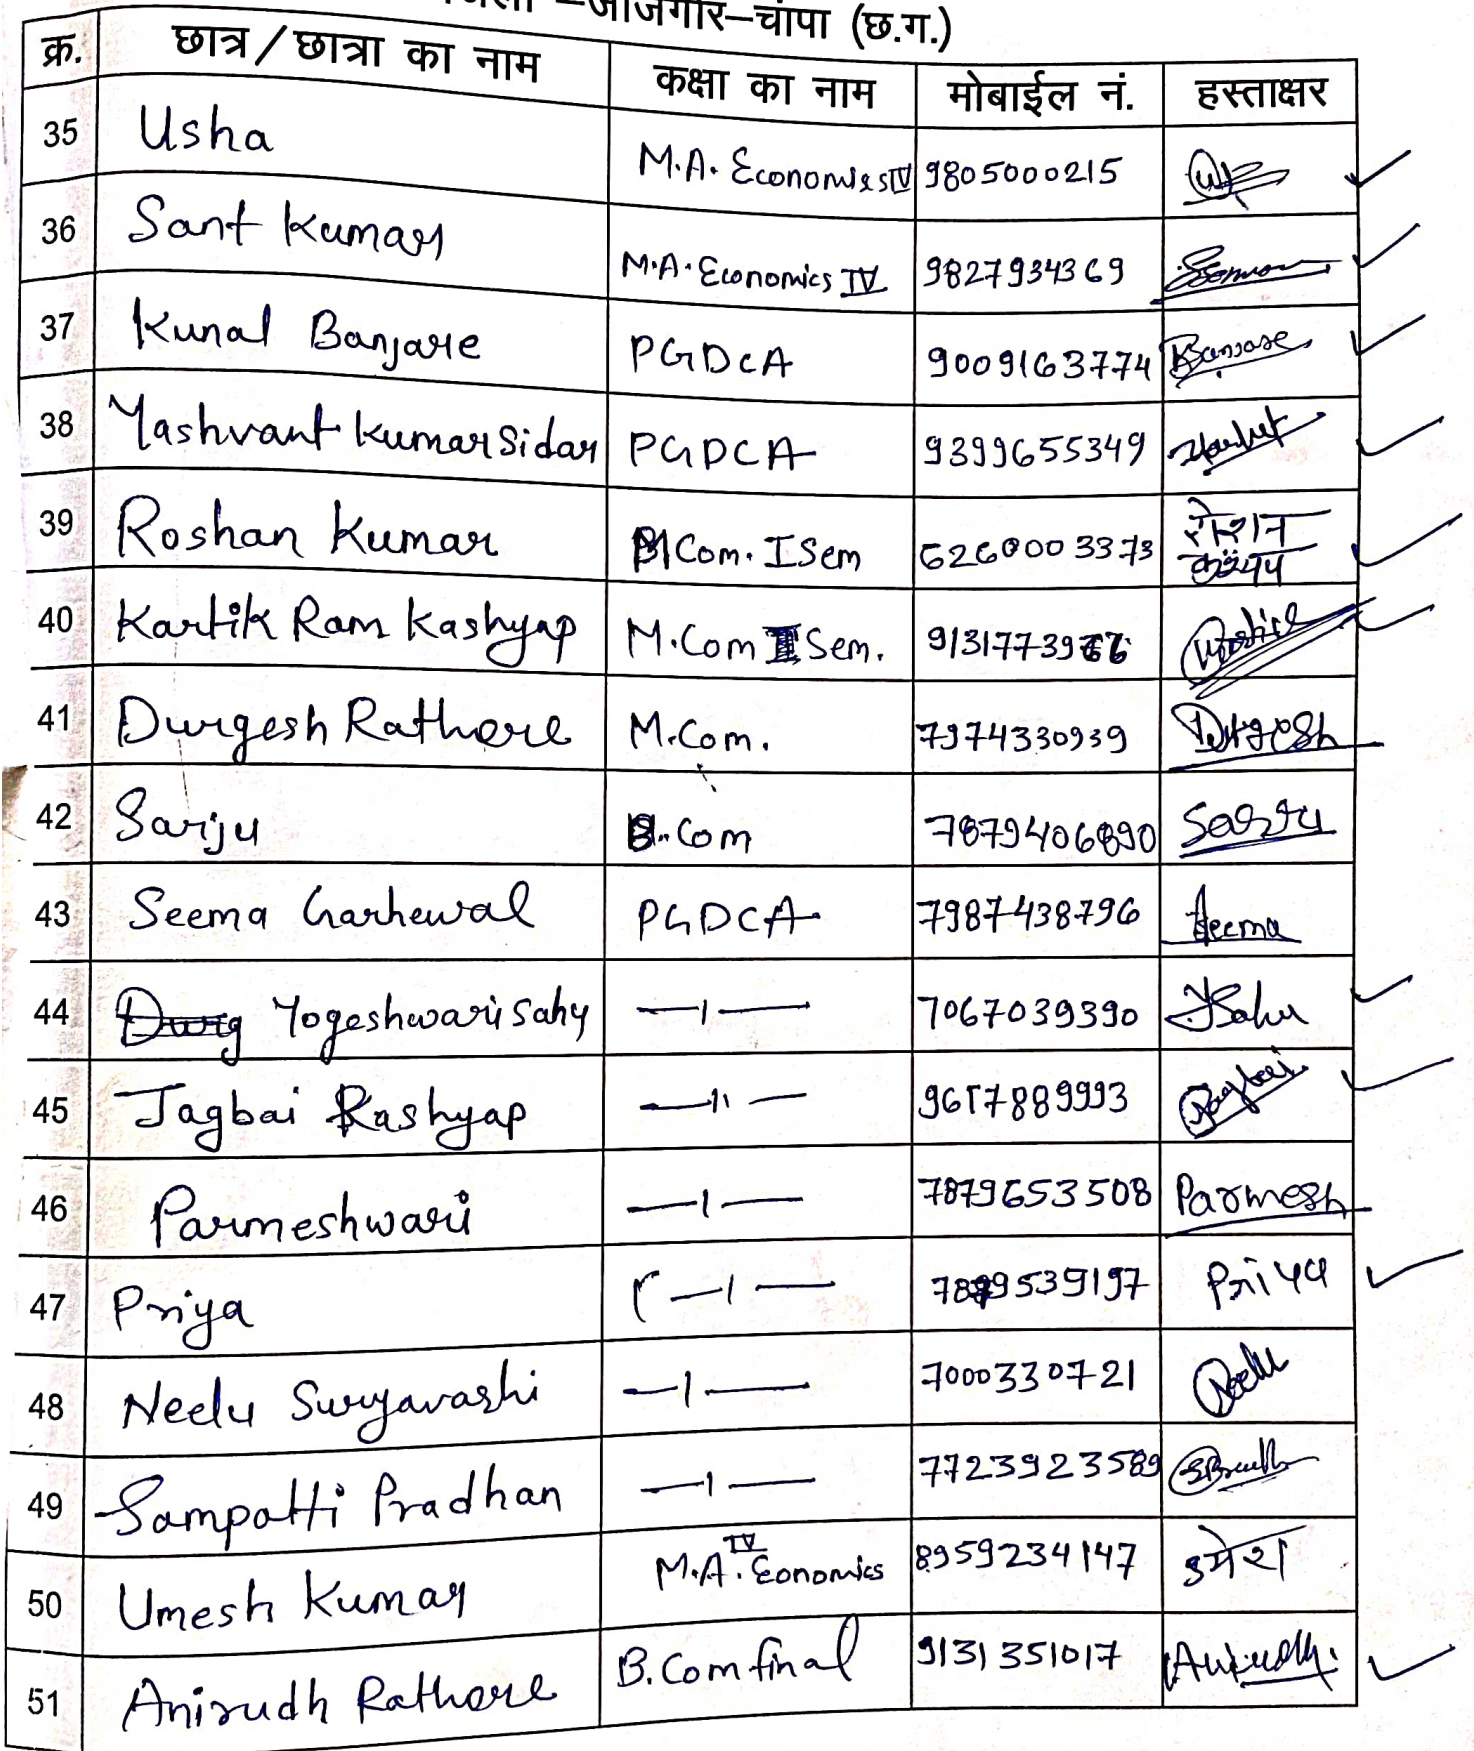 जिला –जांजगीर–चांपा (छ.ग.)
क्र. छात्र/छात्रा का नाम कक्षा का नाम मोबाईल नं. हस्ताक्षर
35 Usha M.A. Economics IV 9805000215
36 Sant Kumar M.A. Economics IV 9827934369
37 Kunal Banjare PGDCA 9009163774 Banjare
38 Yashvant Kumar Sidar PGDCA 9399655349
39 Roshan Kumar M.Com. I Sem 6260003373 रोशन
कश्यप
40 Kartik Ram Kashyap M.Com II Sem. Kartik
41 Durgesh Rathore M.Com. 7974330939 Durgesh
42 Sarju B.Com 7879406890 Sarju
43 Seema Garhewal PGDCA 7987438796 Seema
44 Yogeshwari Sahu —ı— 7067039390 YSahu
45 Jagbai Kashyap —ıı— 9617889993 Jagbai
46 Parmeshwari —ı— 7879653508 Parmesh
47 Priya —ı— Priya
48 Neelu Suryavashi —ı— 7000330721 Neelu
49 Sampatti Pradhan —ı— 7723923589
50 Umesh Kumar M.A. IV Economics 8959234147 उमेश
51 Anirudh Rathore B.Com final 9131351017 Anirudh